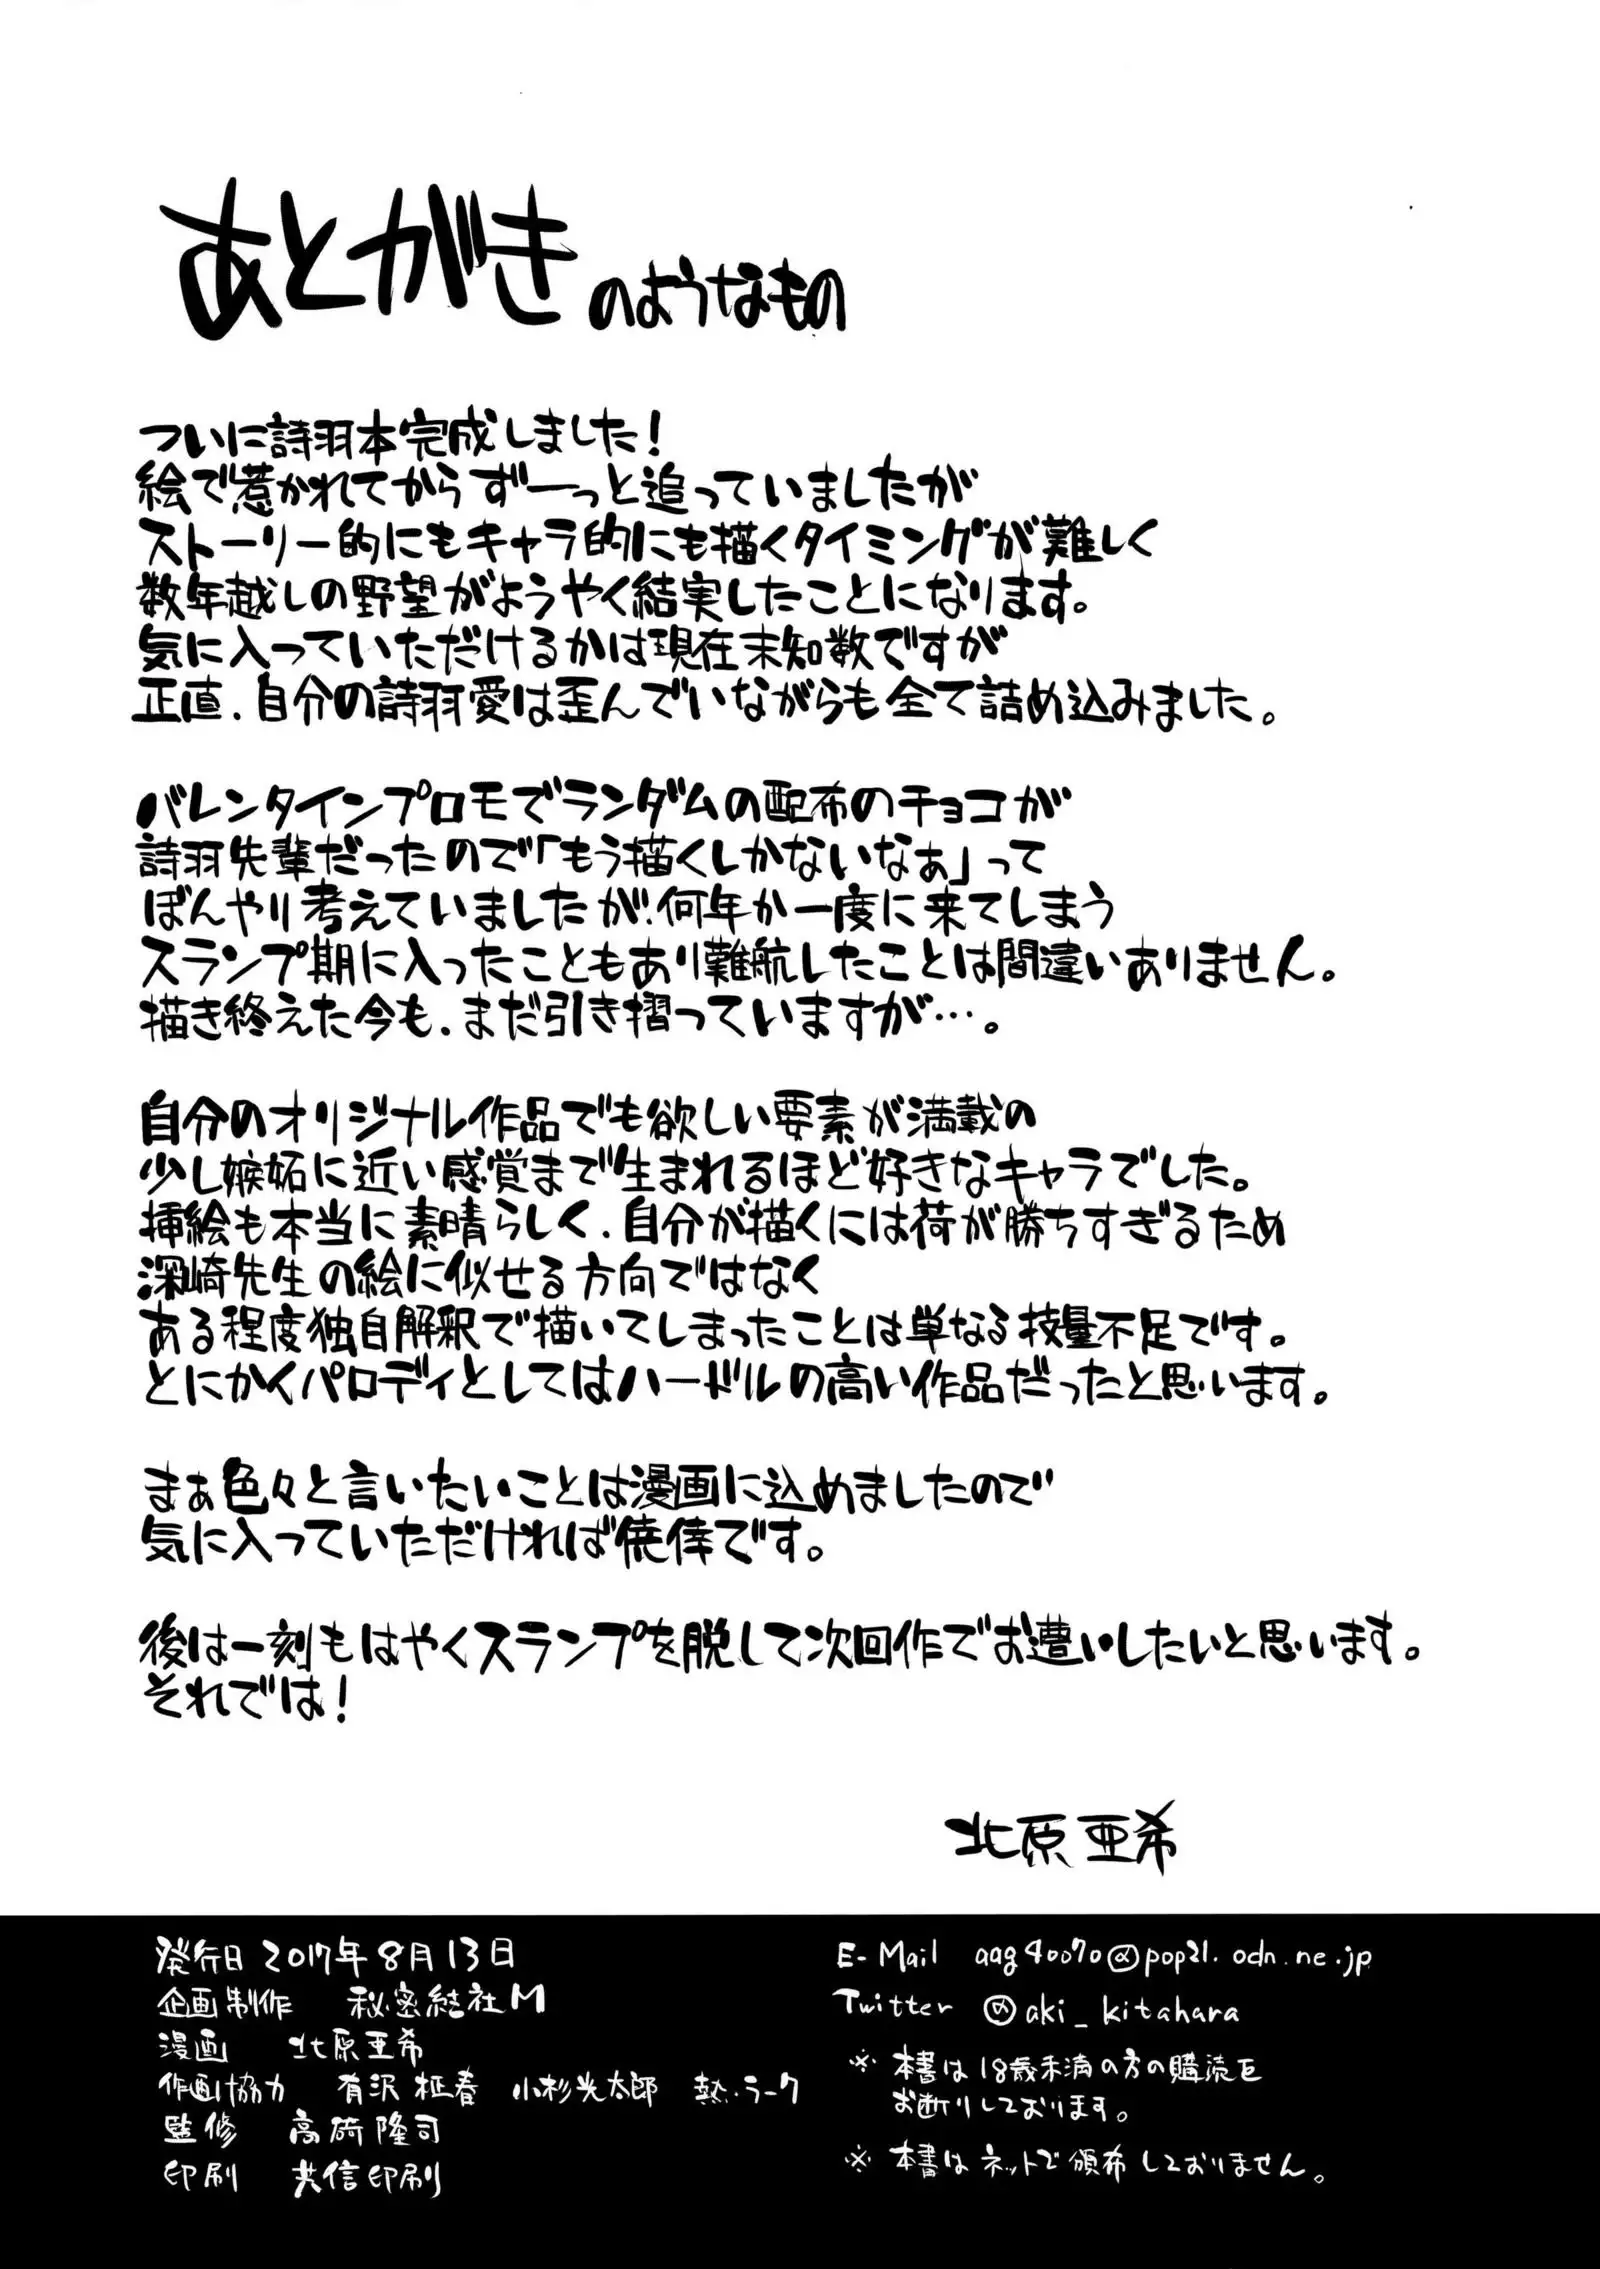 あとがきのようなもの
ついに詩羽本完成しました!
絵で惹かれてからずーっと追っていましたが
ストーリー的にもキャラ的にも描くタイミングが難しく
数年越しの野望がようやく結実したことになります。
気に入っていただけるかは現在未知数ですが
正直、自分の詩羽愛は歪んでいながらも全て詰め込みました。
バレンタインプロモでランダムの配布のチョコが
詩羽先輩だったので「もう描くしかないなぁ」って
ぼんやり考えていましたが、何年か一度に来てしまう
スランプ期に入ったこともあり難航したことは間違いありません。
描き終えた今も、まだ引き摺っていますが…。
自分のオリジナル作品でも欲しい要素が満載の
少し嫉妬に近い感覚まで生まれるほど好きなキャラでした。
挿絵も本当に素晴らしく、自分が描くには荷が勝ちすぎるため
深崎先生の絵に似せる方向ではなく
ある程度独自解釈で描いてしまったことは単なる技量不足です。
とにかくパロディとしてはハードルの高い作品だったと思います。
まぁ色々と言いたいことは漫画に込めましたので
気に入っていただければ僥倖です。
後は一刻もはやくスランプを脱して次回作でお遭いしたいと思います。
それでは!
北原亜希
発行日 2017年8月13日
企画制作 秘密結社M
漫画 北原亜希
作画協力 有沢柾春 小杉光太郎 熱・ラーク
監修 高崎隆司
印刷 共信印刷
E-Mail aag40070@pop21.odn.ne.jp
Twitter @aki_kitahara
※ 本書は18歳未満の方の購読を
お断りしております。
※ 本書はネットで頒布しておりません。